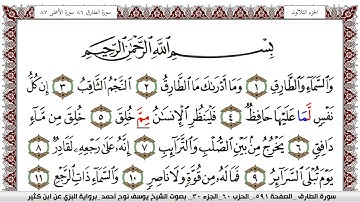 الجزء الثلاثون سورة الطارق ٨٦ سورة الأعلى ٨٧
بِسْمِ اللَّهِ الرَّحْمَٰنِ الرَّحِيمِ
وَالسَّمَاءِ وَالطَّارِقِ ١ وَمَا أَدْرَىٰكَ مَا الطَّارِقُ ٢ النَّجْمُ الثَّاقِبُ ٣ إِن كُلُّ
نَفْسٍ لَّمَا عَلَيْهَا حَافِظٌ ٤ فَلْيَنظُرِ الْإِنسَٰنُ مِمَّ خُلِقَ ٥ خُلِقَ مِن مَّاءٍ
دَافِقٍ ٦ يَخْرُجُ مِنۢ بَيْنِ الصُّلْبِ وَالتَّرَائِبِ ٧ إِنَّهُ عَلَىٰ رَجْعِهِ لَقَادِرٌ ٨
يَوْمَ تُبْلَى السَّرَائِرُ ٩ فَمَا لَهُ مِن قُوَّةٍ وَلَا نَاصِرٍ ١٠ وَالسَّمَاءِ ذَاتِ الرَّجْعِ ١١
سورة الطارق الصفحة ٥٩١ الحزب ٦٠ الجزء ٣٠ بصوت الشيخ يوسف نوح أحمد برواية البزي عن ابن كثير